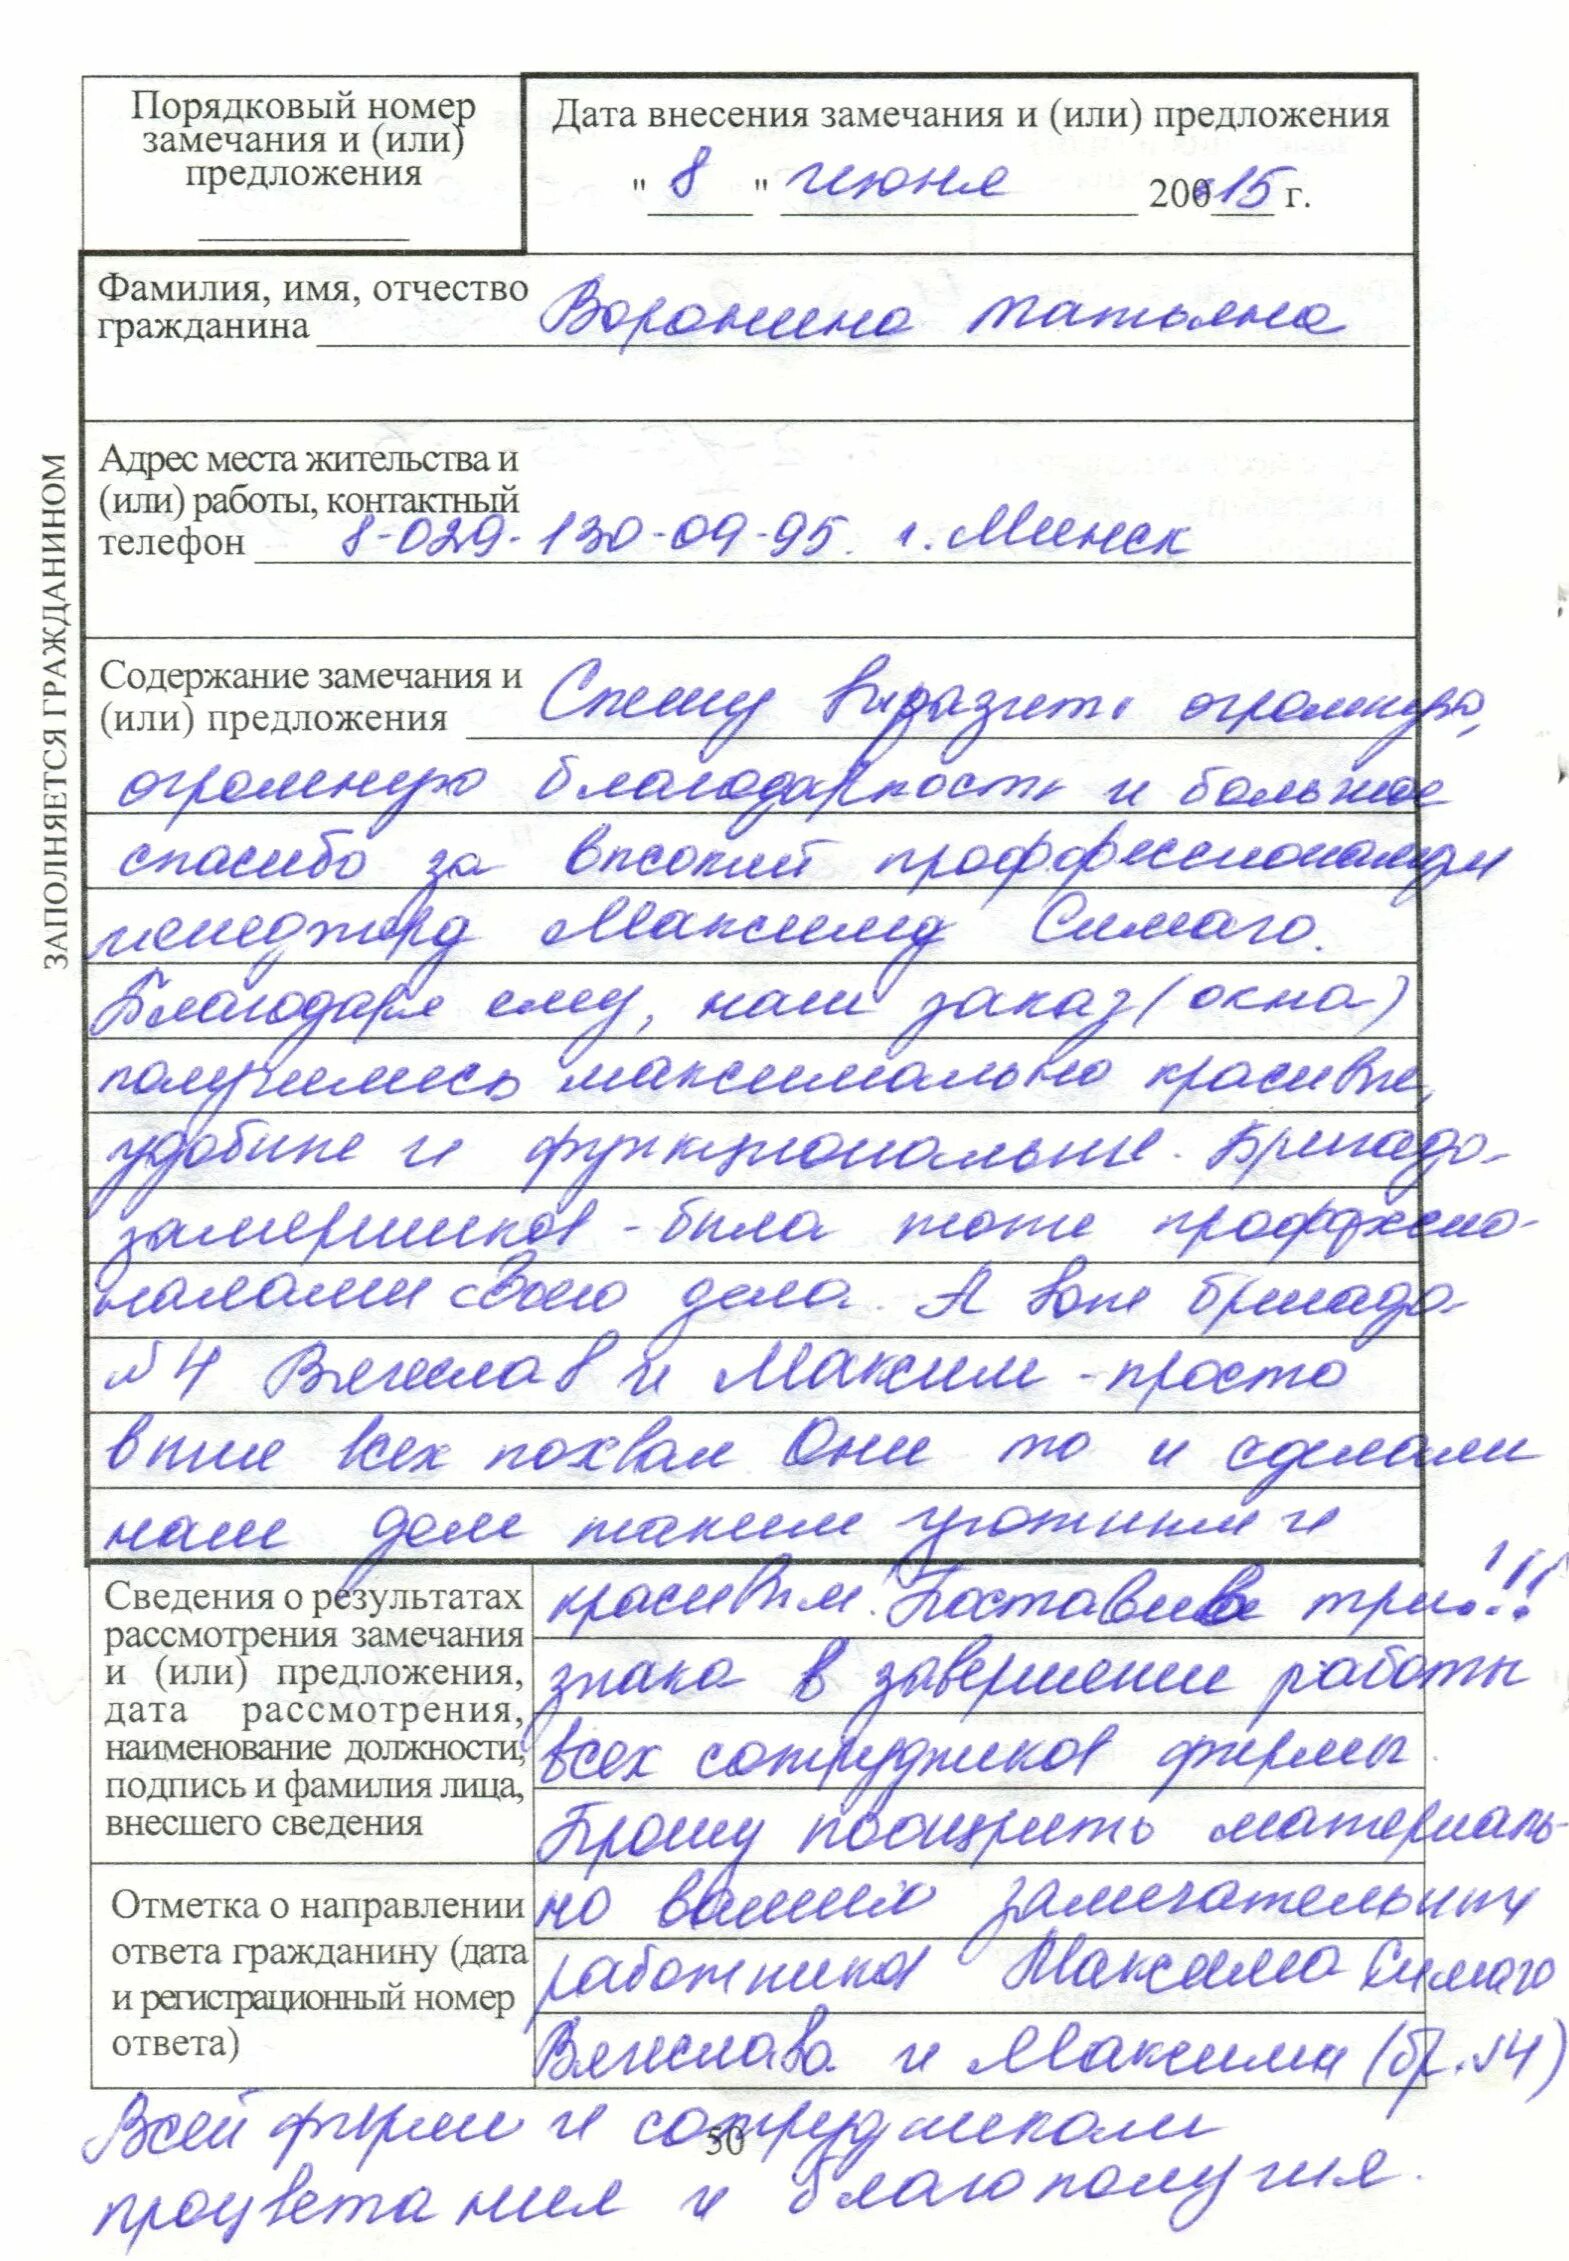 Порядковый номер
замечания и (или)
предложения
Дата внесения замечания и (или) предложения
"8" июня 200 15 г.
ЗАПОЛНЯЕТСЯ ГРАЖДАНИНОМ
Фамилия, имя, отчество
гражданина Воронина Татьяна
Адрес места жительства и
(или) работы, контактный
телефон 8-029-130-09-95. г. Минск
Содержание замечания и
(или) предложения Спешу выразить огромную,
огромную благодарность и большое
спасибо за высокий проффессионализм
менеджера Максима Симаго.
Благодаря ему, наш заказ (окна)
получились максимально красивые,
удобные и функциональные. Бригада-
замерщиков - была тоже професcио-
налами своего дела. А вот бригада
№4 Вячеслав и Максим - просто
выше всех похвал Они то и сделали
наш дом таким уютным и
Сведения о результатах
рассмотрения замечания
и (или) предложения,
дата рассмотрения,
наименование должности,
подпись и фамилия лица,
внесшего сведения
красивым. Поставила три!!!
знака в завершении работы
всех сотрудников фирмы.
Прошу поощрить материаль-
Отметка о направлении
ответа гражданину (дата
и регистрационный номер
ответа)
но ваших замечательных
работников Максима Симаго
Вячеслава и Максима (бр. №4)
Всей фирме и сотрудникам
50
процветания и благополучия.